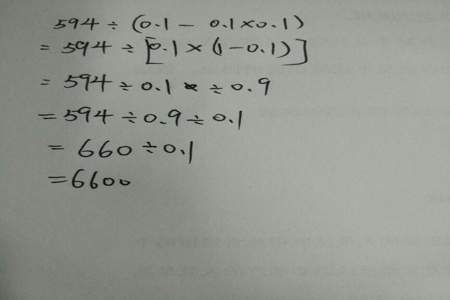 594 ÷ (0.1 - 0.1×0.1)
= 594 ÷ [0.1 × (1-0.1)]
= 594 ÷ 0.1 ÷ 0.9
= 594 ÷ 0.9 ÷ 0.1
= 660 ÷ 0.1
= 6600